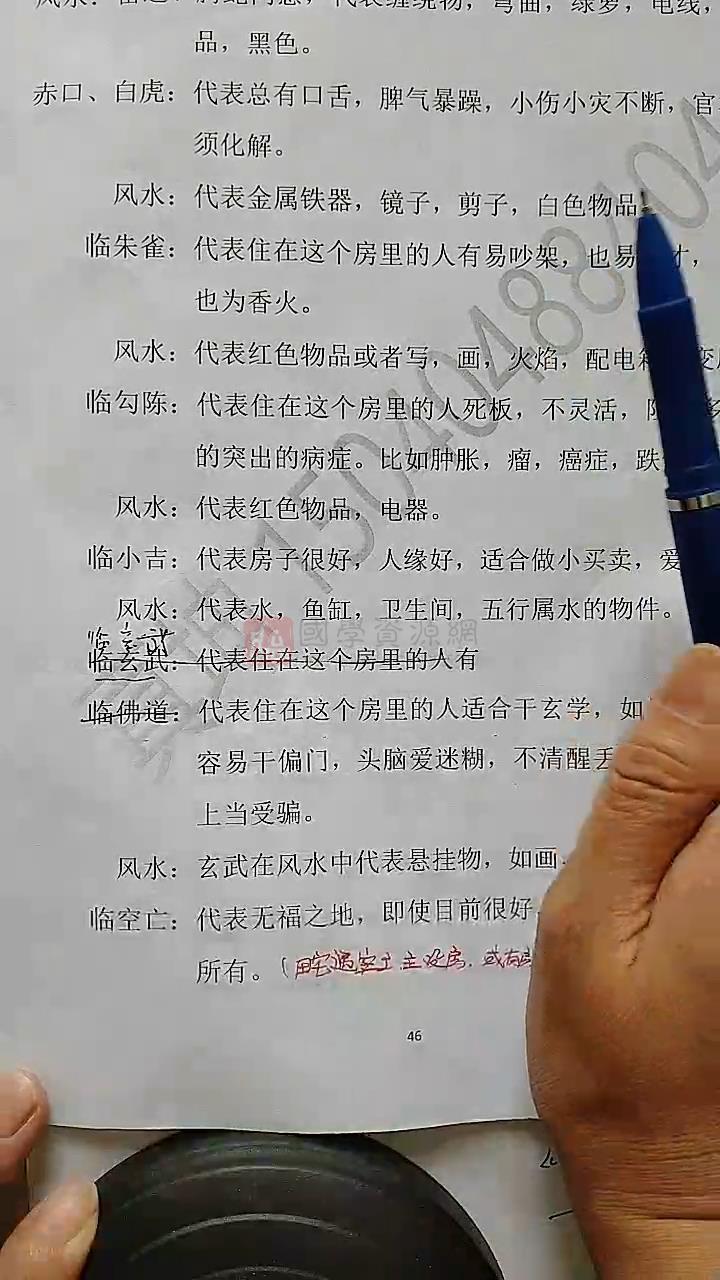 品，黑色。
赤口、白虎：代表总有口舌，脾气暴躁，小伤小灾不断，官
须化解。
风水：代表金属铁器，镜子，剪子，白色物品
临朱雀：代表住在这个房里的人有易吵架，也易
也为香火。
风水：代表红色物品或者写，画，火焰，配电
临勾陈：代表住在这个房里的人死板，不灵活，
的突出的病症。比如肿胀，瘤，癌症，跌
风水：代表红色物品，电器。
临小吉：代表房子很好，人缘好，适合做小买卖，爱
风水：代表水，鱼缸，卫生间，五行属水的物件。
國學資源網
临玄武
临玄武：代表住在这个房里的人有
临佛道：代表住在这个房里的人适合干玄学，如
容易干偏门，头脑爱迷糊，不清醒丢
上当受骗。
风水：玄武在风水中代表悬挂物，如画
临空亡：代表无福之地，即使目前很好
所有。
46